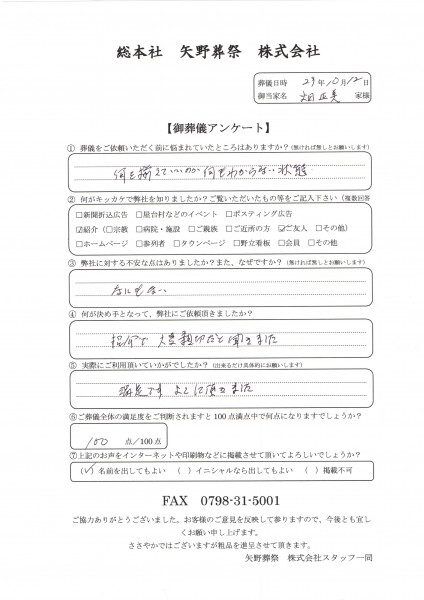 総本社 矢野葬祭 株式会社
葬儀日時 29年10月12日
御当家名 家様
【御葬儀アンケート】
① 葬儀をご依頼いただく前に悩まれていたところはありますか?(無ければ無しとお願いします)
何を揃えていいのか 何もわからない状態
② 何がキッカケで弊社を知りましたか?ご覧いただいたもの等をご記入下さい(複数回答
□新聞折込広告 □屋台村などのイベント □ポスティング広告
☑紹介(□宗教 □病院・施設 □ご親族 □ご近所の方 ☑ご友人 □その他)
□ホームページ □参列者 □タウンページ □野立看板 □会員 □その他
③ 弊社に対する不安な点はありましたか?また、なぜですか?(無ければ無しとお願いします)
なにもない
④ 何が決め手となって、弊社にご依頼頂きましたか?
紹介で 大変親切だと聞きました
⑤ 実際にご利用頂いていかがでしたか?(出来るだけ具体的にお願いします)
満足です よくして頂きました
⑥ご葬儀全体の満足度をご判断されますと100点満点中で何点になりますでしょうか?
100 点/100点
⑦上記のお声をインターネットや印刷物などに掲載させて頂いてよろしいでしょうか?
(✓)名前を出してもよい ( )イニシャルなら出してもよい ( )掲載不可
FAX 0798-31-5001
ご協力ありがとうございました。お客様のご意見を反映して参りますので、今後とも宜し
くお願い申し上げます。
ささやかではございますが粗品を進呈させて頂きます。
矢野葬祭 株式会社スタッフ一同